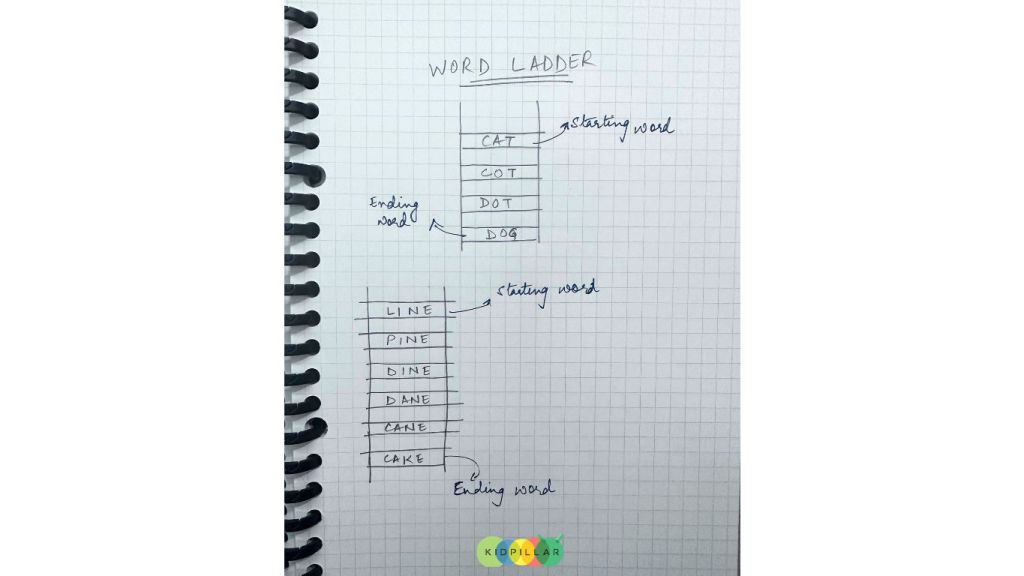 WORD LADDER
Starting word
CAT
COT
DOT
Ending
word
DOG
Starting word
LINE
PINE
DINE
DANE
CANE
CAKE
Ending word
KIDPILLAR